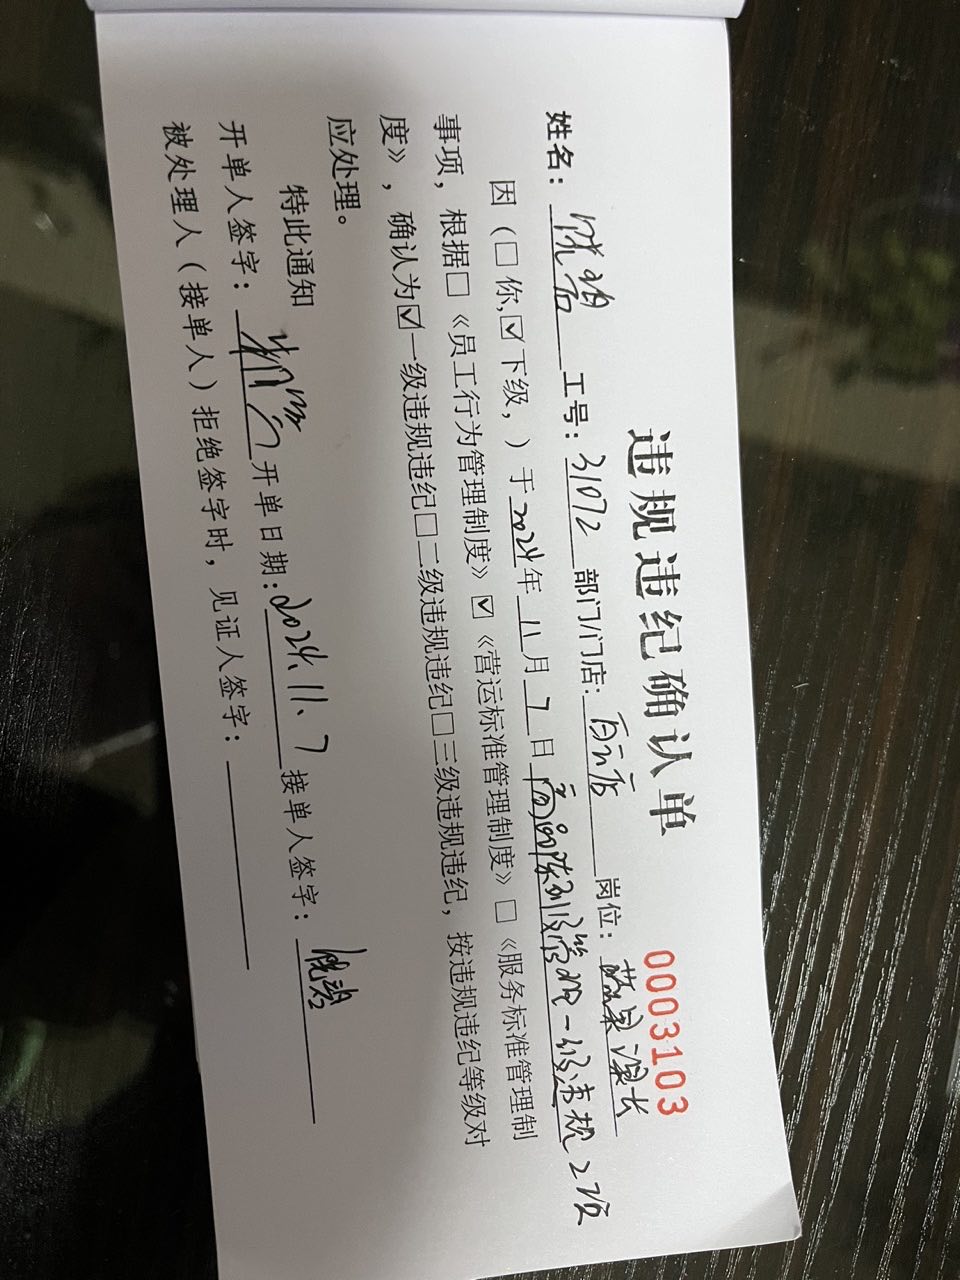 违规违纪确认单
0003103
姓名： 工号：31072 部门/门店：白云店 岗位：蔬果课长
因（□你,☑下级，）于2024年11月7日商品陈列管理一级违规2项
事项，根据□《员工行为管理制度》☑《营运标准管理制度》□《服务标准管理制
度》，确认为☑一级违规违纪□二级违规违纪□三级违规违纪，按违规违纪等级对
应处理。
特此通知
开单人签字： 开单日期:2024.11.7 接单人签字：
被处理人（接单人）拒绝签字时，见证人签字：